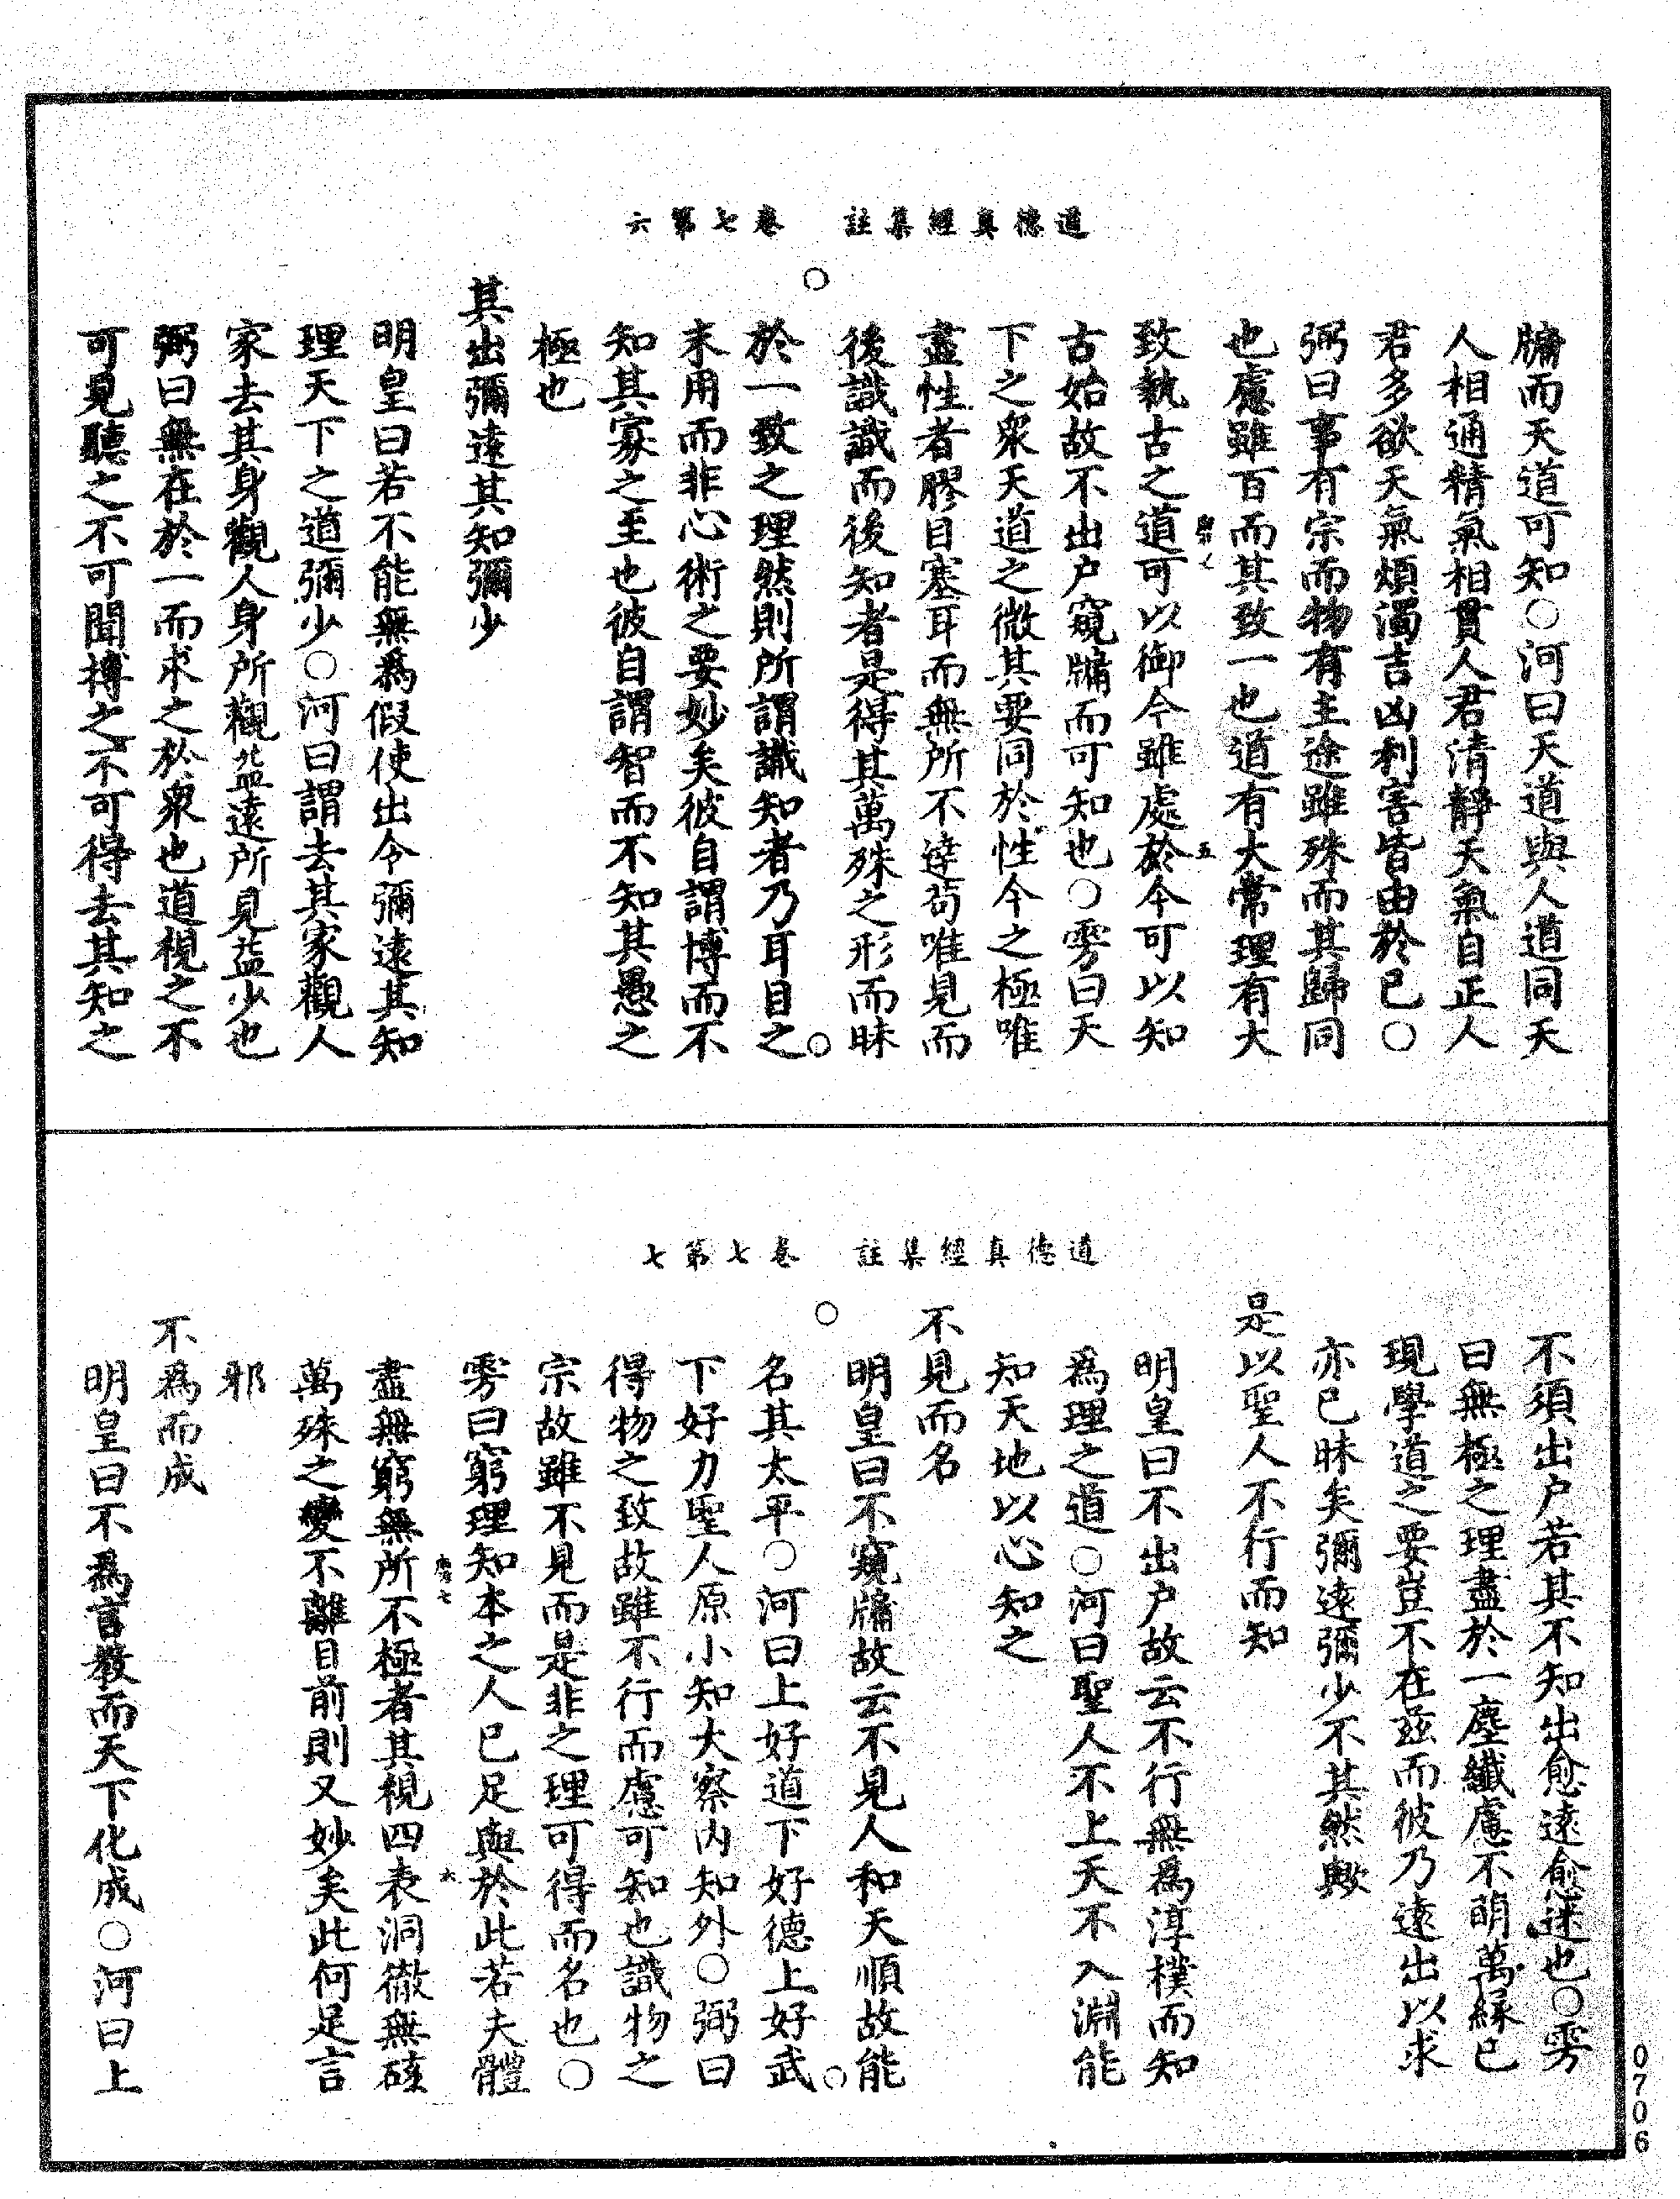 道德真經集註　卷七第六
牖而天道可知○河曰天道與人道同天
人相通精氣相貫人君清靜天氣自正人
君多欲天氣煩濁吉凶利害皆由於已○
弼曰事有宗而物有主途雖殊而其歸同
也慮雖百而其致一也道有大常理有大
致執古之道可以御今雖處於今可以知
五
古始故不出户窺牖而可知也○雱曰天
下之衆天道之微其要同於性今之極唯
盡性者膠目塞耳而無所不達苟唯見而
後識識而後知者是得其萬殊之形而昧
於一致之理然則所謂識知者乃耳目之
末用而非心術之要妙矣彼自謂博而不
知其寡之至也彼自謂智而不知其愚之
極也
其出彌遠其知彌少
明皇曰若不能無爲假使出令彌遠其知
理天下之道彌少○河曰謂去其家觀人
家去其身觀人身所觀益遠所見益少也
弼曰無在於一而求之於衆也道視之不
可見聽之不可聞搏之不可得去其知之
道德真經集註　卷七第七
不須出户若其不知出愈遠愈迷也○雱
曰無極之理盡於一塵纖慮不萌萬緣已
現學道之要豈不在兹而彼乃遠出以求
亦已昧矣彌遠彌少不其然歟
是以聖人不行而知
明皇曰不出户故云不行無爲淳樸而知
爲理之道○河曰聖人不上天不入淵能
知天地以心知之
不見而名
明皇曰不窺牖故云不見人和天順故能
名其太平○河曰上好道下好德上好武
下好力聖人原小知大察内知外○弼曰
得物之致故雖不行而慮可知也識物之
宗故雖不見而是非之理可得而名也○
雱曰窮理知本之人已足與於此若夫體
六
盡無窮無所不極者其視四表洞徹無礙
萬殊之變不離目前則又妙矣此何足言
邪
不爲而成
明皇曰不爲言教而天下化成○河曰上
0706